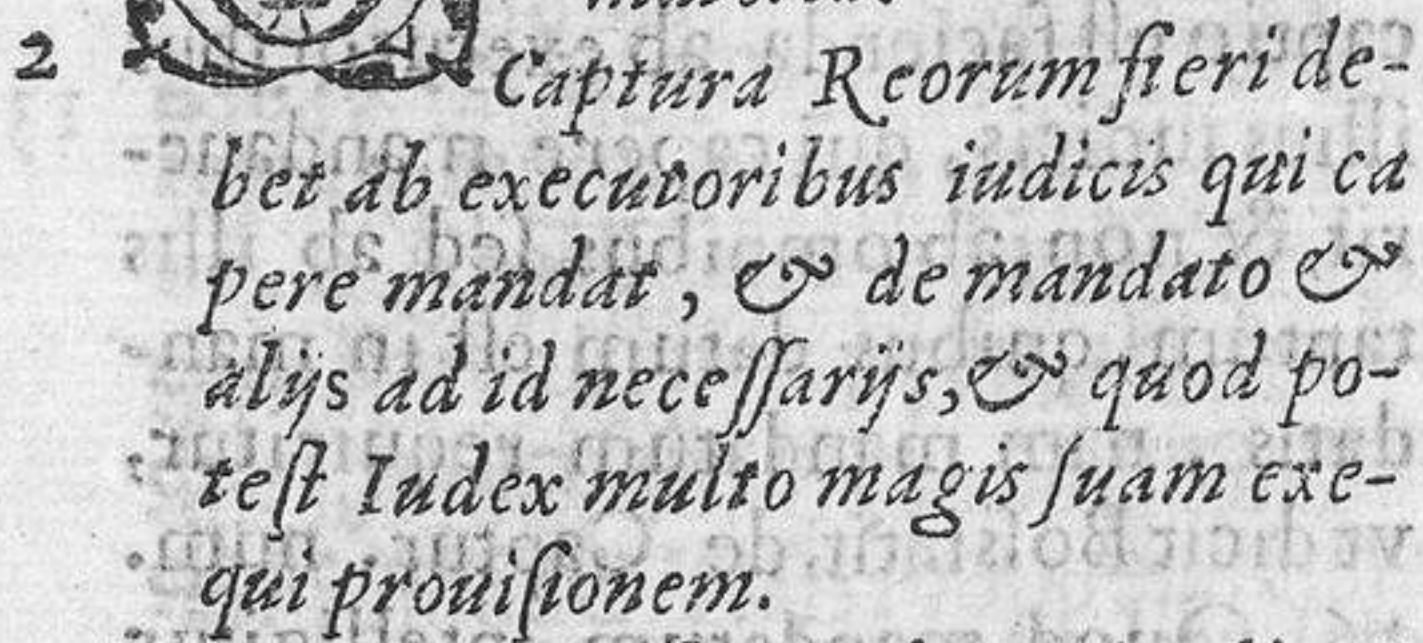 2 Captura Reorum fieri de-
bet ab executoribus iudicis qui ca
pere mandat, & de mandato &
alijs ad id neceſſarijs, & quod po-
teſt Iudex multo magis ſuam exe-
qui prouiſionem.